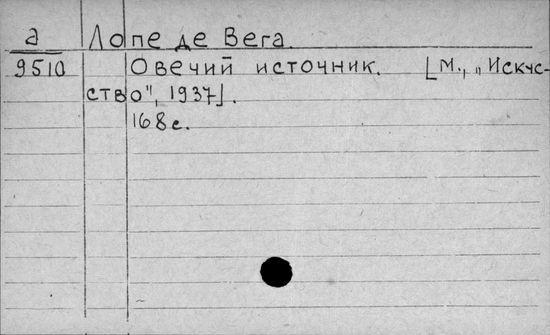 а Лопе де Вега.
9510 Овечий источник. [М., „Искус-
ство", 1937].
168 с.